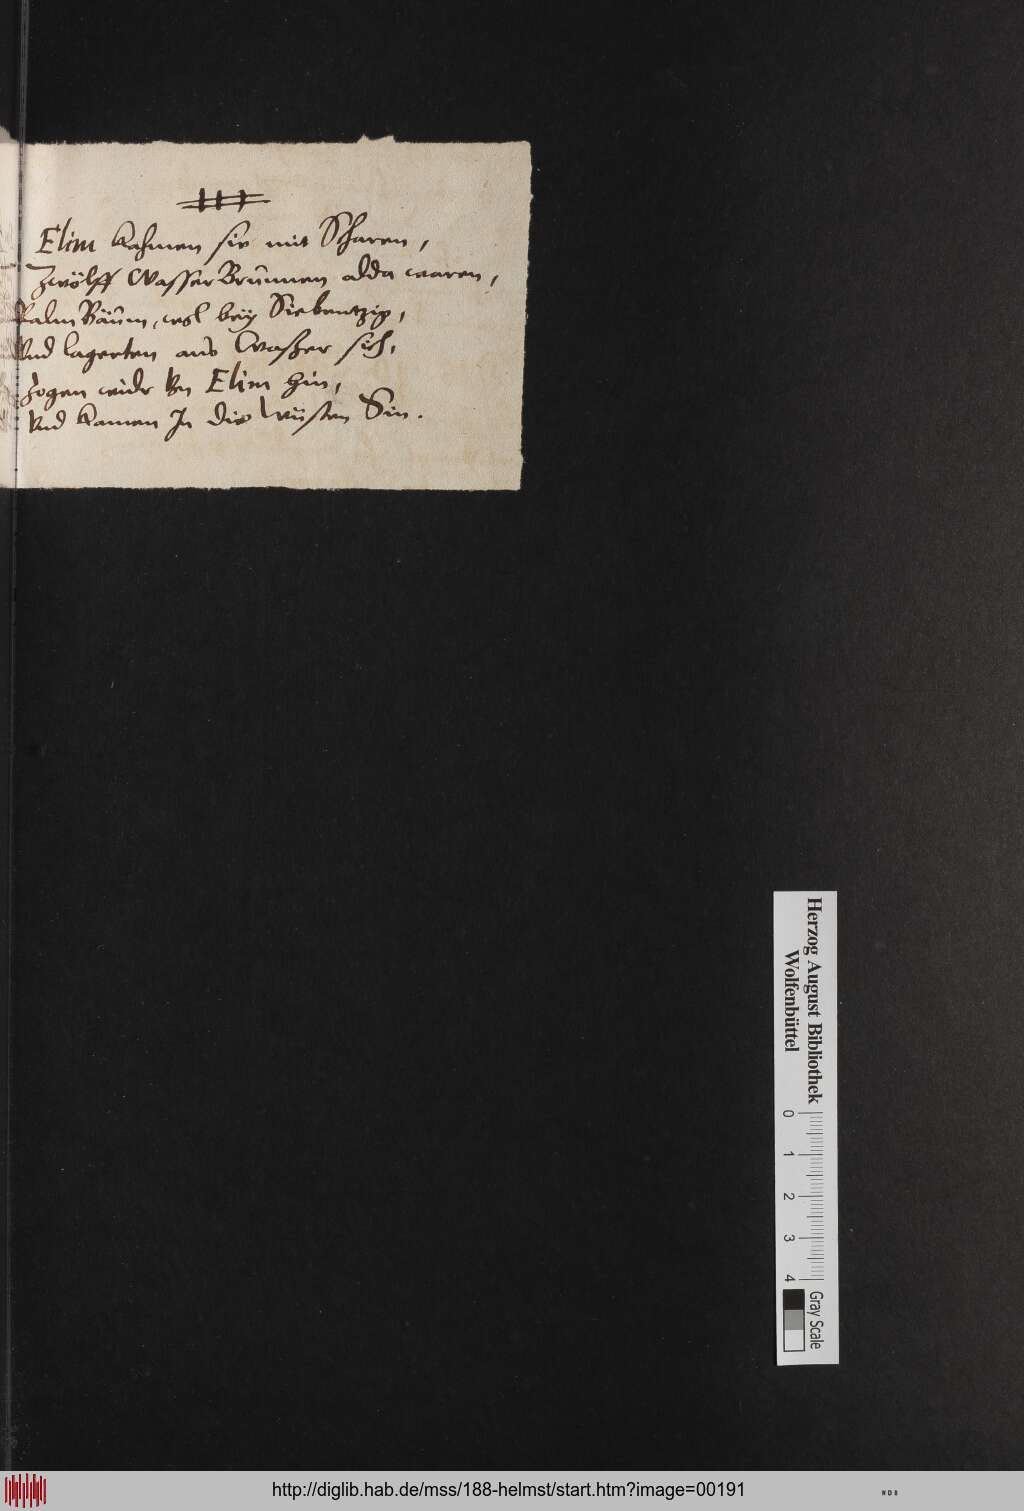 Elim kahmen sie mit Scharen,
Zwölff Wasser Brunnen alda waren,
Palm Bäum, wol bey Siebentzig,
Vnd lagerten ans Waßer sich,
Zogen widr von Elim hin,
Vnd kamen In die Wüsten Sin.
Herzog August Bibliothek
Wolfenbüttel
0 1 2 3 4
Gray Scale
http://diglib.hab.de/mss/188-helmst/start.htm?image=00191